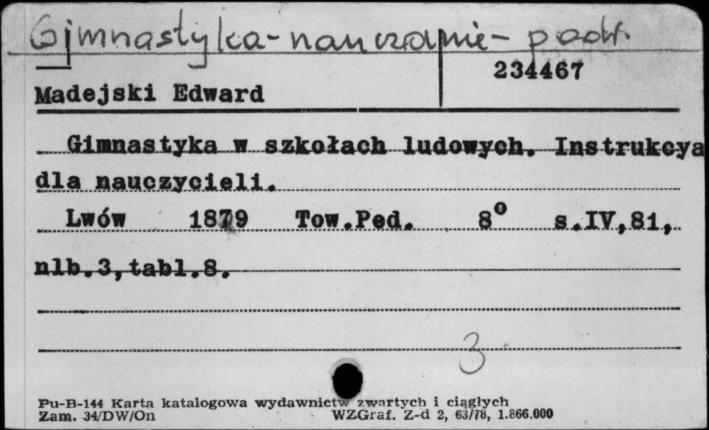 Gimnastyka - nauczanie - podr.
234467
Madejski Edward
Gimnastyka w szkołach ludowych. Instrukcya
dla nauczycieli.
Lwów 1879 Tow.Ped. 8° s.IV,81,
nlb.3,tabl.8.
3
Pu-B-144 Karta katalogowa wydawnictw zwartych i ciągłych
Zam. 34/DW/On WZGraf. Z-d 2, 63/78, 1.866.000